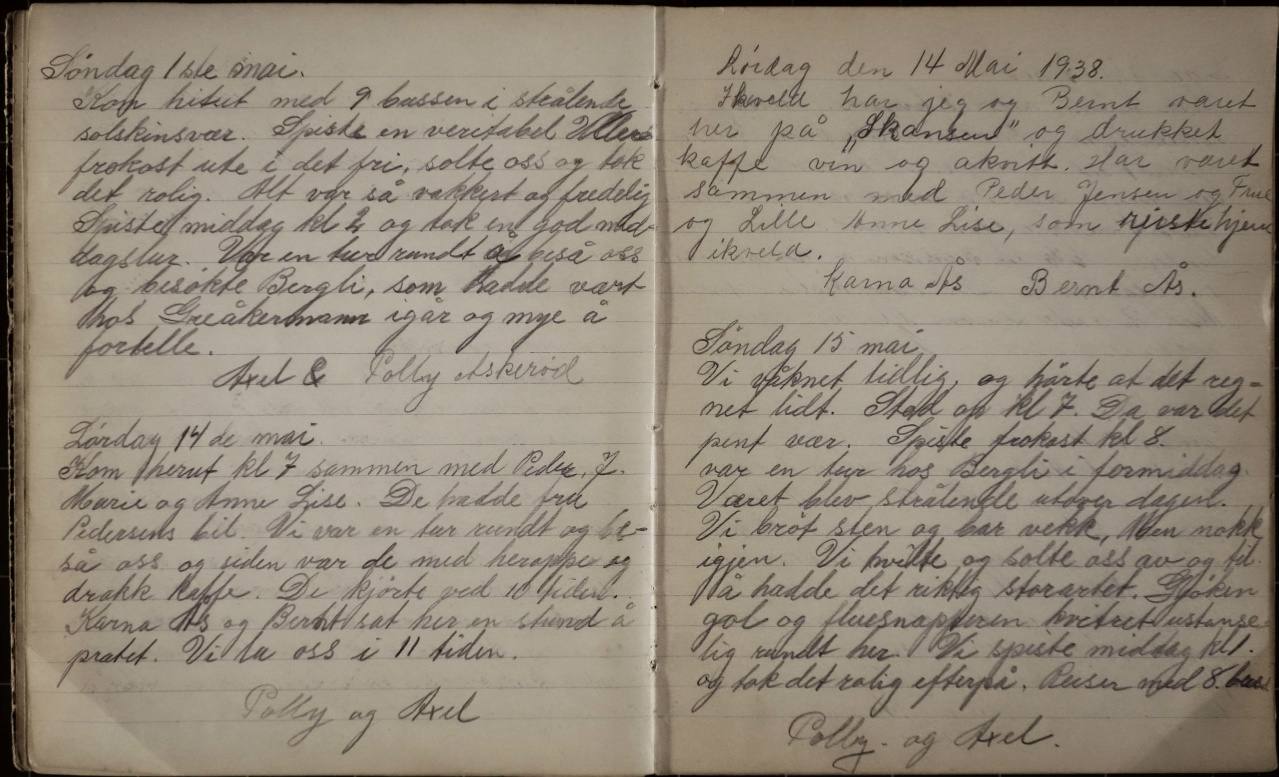 Søndag 1ste mai.
Kom hitut med 9 bussen i strålende
solskinsvær. Spiste en veritabel
frokost ute i det fri, solte oss og tok
det rolig. Alt var så vakkert og fredelig
Spiste middag kl 2 og tok en god mid-
dagslur. Var en tur rundt å beså oss
og besökte Bergli, som hadde vært
hos Greåkermann igår og mye å
fortelle.
Axel & Polly Askerød
Lørdag 14 de mai.
Kom herut kl 7 sammen med Peder, J.
Marie og Anne Lise. De hadde fru
Pedersens bil. Vi var en tur rundt og be-
så oss og siden var de med heroppe og
drakk kaffe. De kjørte ved 10 tiden.
Karna Ås og Bernt sat her en stund å
pratet. Vi la oss i 11 tiden.
Polly og Axel
Lördag den 14 Mai 1938.
Ikveld har jeg og Bernt været
her på „Skansen" og drukket
kaffe vin og akvitt. Har været
sammen med Peder Jensen og Frue
og Lille Anne Lise, som reiste hjem
ikveld.
Karna Ås Bernt Ås.
Søndag 15 mai
Vi våknet tidlig, og hörte at det reg-
net lidt. Stod op kl 7. Da var det
pent vær. Spiste frokost kl 8.
var en tur hos Bergli i formiddag.
Været blev strålende utover dagen.
Vi brøt sten og bar vekk, Men nokk
igjen. Vi hvilte og solte oss av og til.
å hadde det riktig storartet. Gjöken
gol og fluesnapperen kvitret ustanse-
lig rundt her. Vi spiste middag kl 1.
og tok det rolig efterpå. Reiser med 8. bus
Polly og Axel.